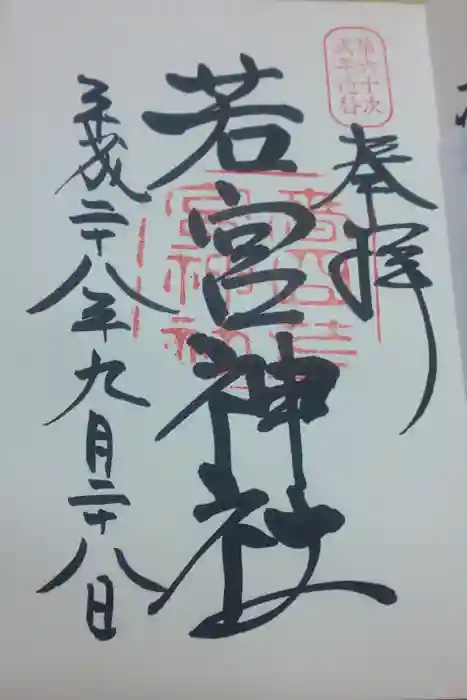 第六十次
式年造替
奉拝
若宮神社
平成二十八年九月二十八日